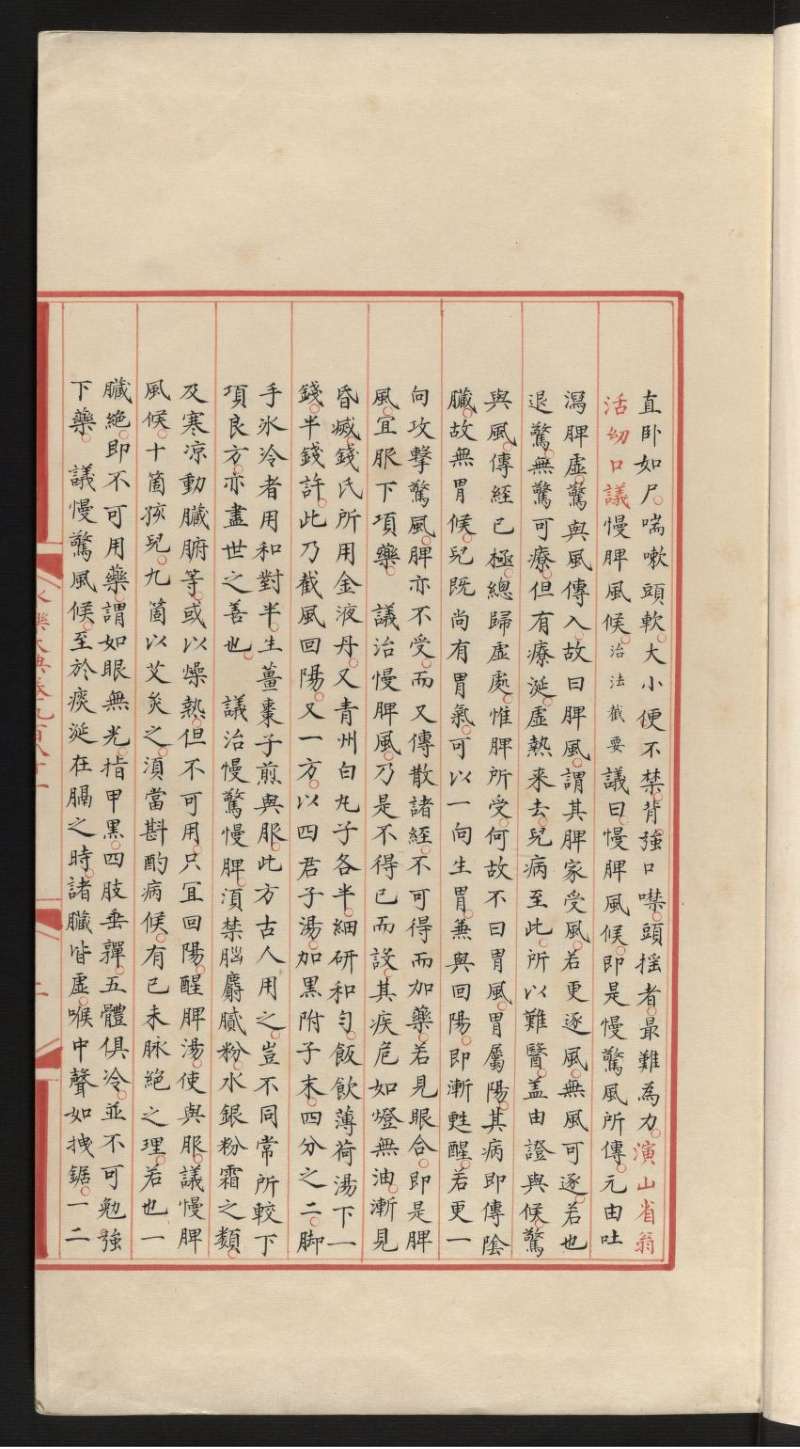 直卧如尸。喘嗽頭軟。大小便不禁。背強口噤。頭揺者。最難為力。演山省翁
活幼口議慢脾風候。治法截要議曰。慢脾風候。即是慢驚風所傳。元由吐
瀉脾虛。驚與風傳入。故曰脾風。謂其脾家受風。若更逐風。無風可逐。若也
退驚。無驚可療。但有療涎。虛熱来去。兒病至此。所以難醫。盖由證與候。驚
與風。傳經已極。總歸虛處。惟脾所受。何故不曰胃風。胃屬陽。其病即傳陰
臟。故無胃候。兒既尚有胃氣。可以一向生胃。兼與回陽。即漸甦醒。若更一
向攻擊驚風。脾亦不受。而又傳散諸經。不可得而加藥。若見眼合。即是脾
風。宜服下項藥。議治慢脾風。乃是不得已而設。其疾危如燈無油。漸見
昏㓕。錢氏所用金液丹。又青州白丸子各半。細研和匀。飯飲薄荷湯下一
錢。半錢許。此乃截風回陽。又一方。以四君子湯。加黑附子末。四分之二。脚
手氷冷者用和對半。生薑棗子煎與服。此方古人用之。豈不同常所較下
項良方。亦盡世之善也。議治慢驚慢脾。湏禁腦麝膩粉。水銀粉霜之類。
及寒凉動臟腑等。或以燥熱。但不可用。只宜回陽。醒脾湯。使與服。議慢脾
風候。十箇孩兒。九箇以艾灸之。湏當斟酌病候。有已未脉絶之理。若也一
臟絶。即不可用藥。謂如眼無光。指甲黑。四肢垂嚲。五體俱冷。並不可勉強
下藥。議慢驚風候。至於痰涎在膈之時。諸臟皆虛。喉中聲如拽鋸。一二
永樂大典卷九百八十一
二